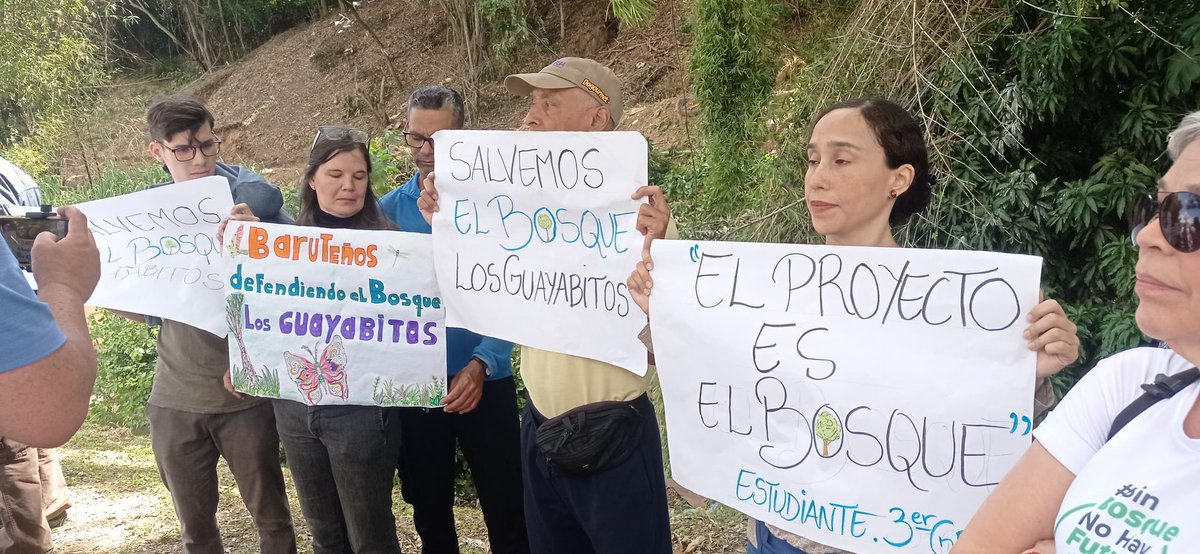 SALVEMOS
EL BOSQUE
BARUTEÑOS
defendiendo el Bosque
Los GUAYABITOS
SALVEMOS
EL BOSQUE
LOS GUAYABITOS
“EL PROYECTO
ES
EL BOSQUE”
ESTUDIANTE. 3er
#in
BOSQUE
No Hay
Fu